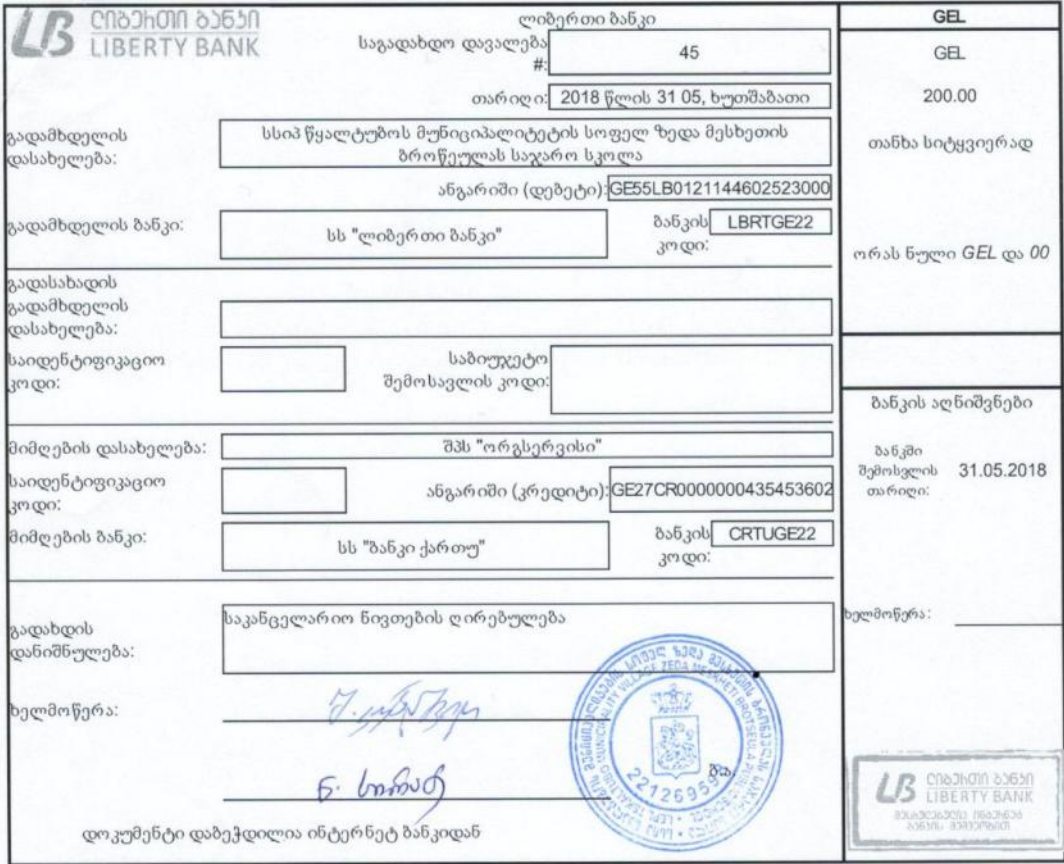 ლიბერთი ბანკი
LIBERTY BANK
ლიბერთი ბანკი
საგადახდო დავალება
#:
45
თარიღი:
2018 წლის 31 05, ხუთშაბათი
გადამხდელის
დასახელება:
სსიპ წყალტუბოს მუნიციპალიტეტის სოფელ ზედა მესხეთის
ბროწეულას საჯარო სკოლა
ანგარიში (დებეტი):
GE55LB0121144602523000
გადამხდელის ბანკი:
სს "ლიბერთი ბანკი"
ბანკის
კოდი:
LBRTGE22
გადასახადის
გადამხდელის
დასახელება:
საიდენტიფიკაციო
კოდი:
საბიუჯეტო
შემოსავლის კოდი:
მიმღების დასახელება:
შპს "ორგსერვისი"
საიდენტიფიკაციო
კოდი:
ანგარიში (კრედიტი):
GE27CR0000000435453602
მიმღების ბანკი:
სს "ბანკი ქართუ"
ბანკის
კოდი:
CRTUGE22
გადახდის
დანიშნულება:
საკანცელარიო ნივთების ღირებულება
ხელმოწერა:
ბ.ა.
დოკუმენტი დაბეჭდილია ინტერნეტ ბანკიდან
GEL
GEL
200.00
თანხა სიტყვიერად
ორას ნული GEL და 00
ბანკის აღნიშვნები
ბანკში
შემოსვლის
თარიღი:
31.05.2018
ხელმოწერა:
ლიბერთი ბანკი
LIBERTY BANK
შესრულებულია ინტერნეტ
ბანკის მეშვეობით